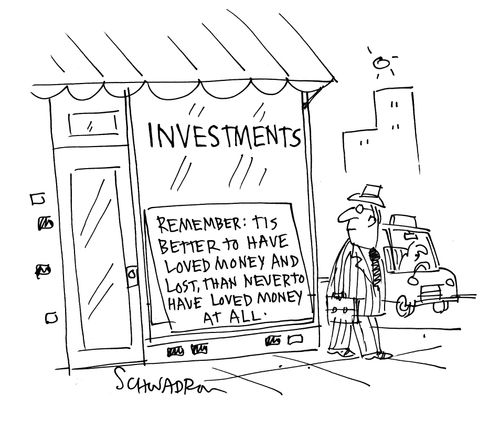 INVESTMENTS
REMEMBER: TIS
BETTER TO HAVE
LOVED MONEY AND
LOST, THAN NEVER TO
HAVE LOVED MONEY
AT ALL.
SCHWADRON